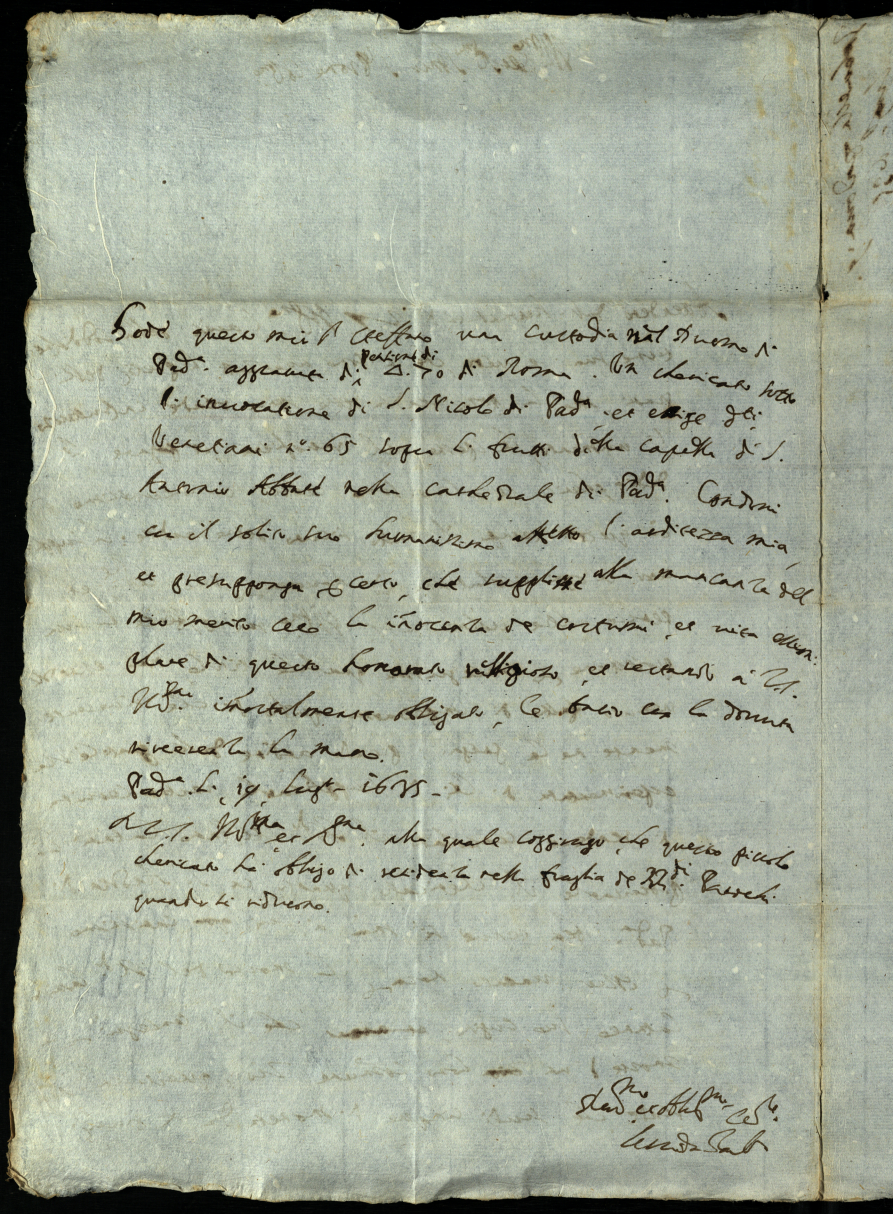 Gode questo mio P. Steffano una custodia nel Duomo di
Pad.a aggravata di pensione di Δ. 70 di Roma. Un chiericato sotto
l'invocatione di S. Nicolò di Pad.a, et esige d.ti
Venetiani n.o 65 sopra li frutti della capella di S.
Antonio Abbate nella cathedrale di Pad.a. Condoni
con il solito suo humanissimo affetto l'arditezza mia,
et presupponga p certo, che supplisse alla mancanza del
mio merito la inocenza de costumi, et vita essem:
plare di questo honorato religioso, et restando à V.S.
immortalmente obligato, le bacio con la dovuta
riverenza la mano.
Pad.a Li. 19. lugo 1635.
Di V.S. et, alla quale soggiungo, che questo piccolo
chiericato hà obligo di residenza nella fraglia de Parochi
quando si riducono.
et